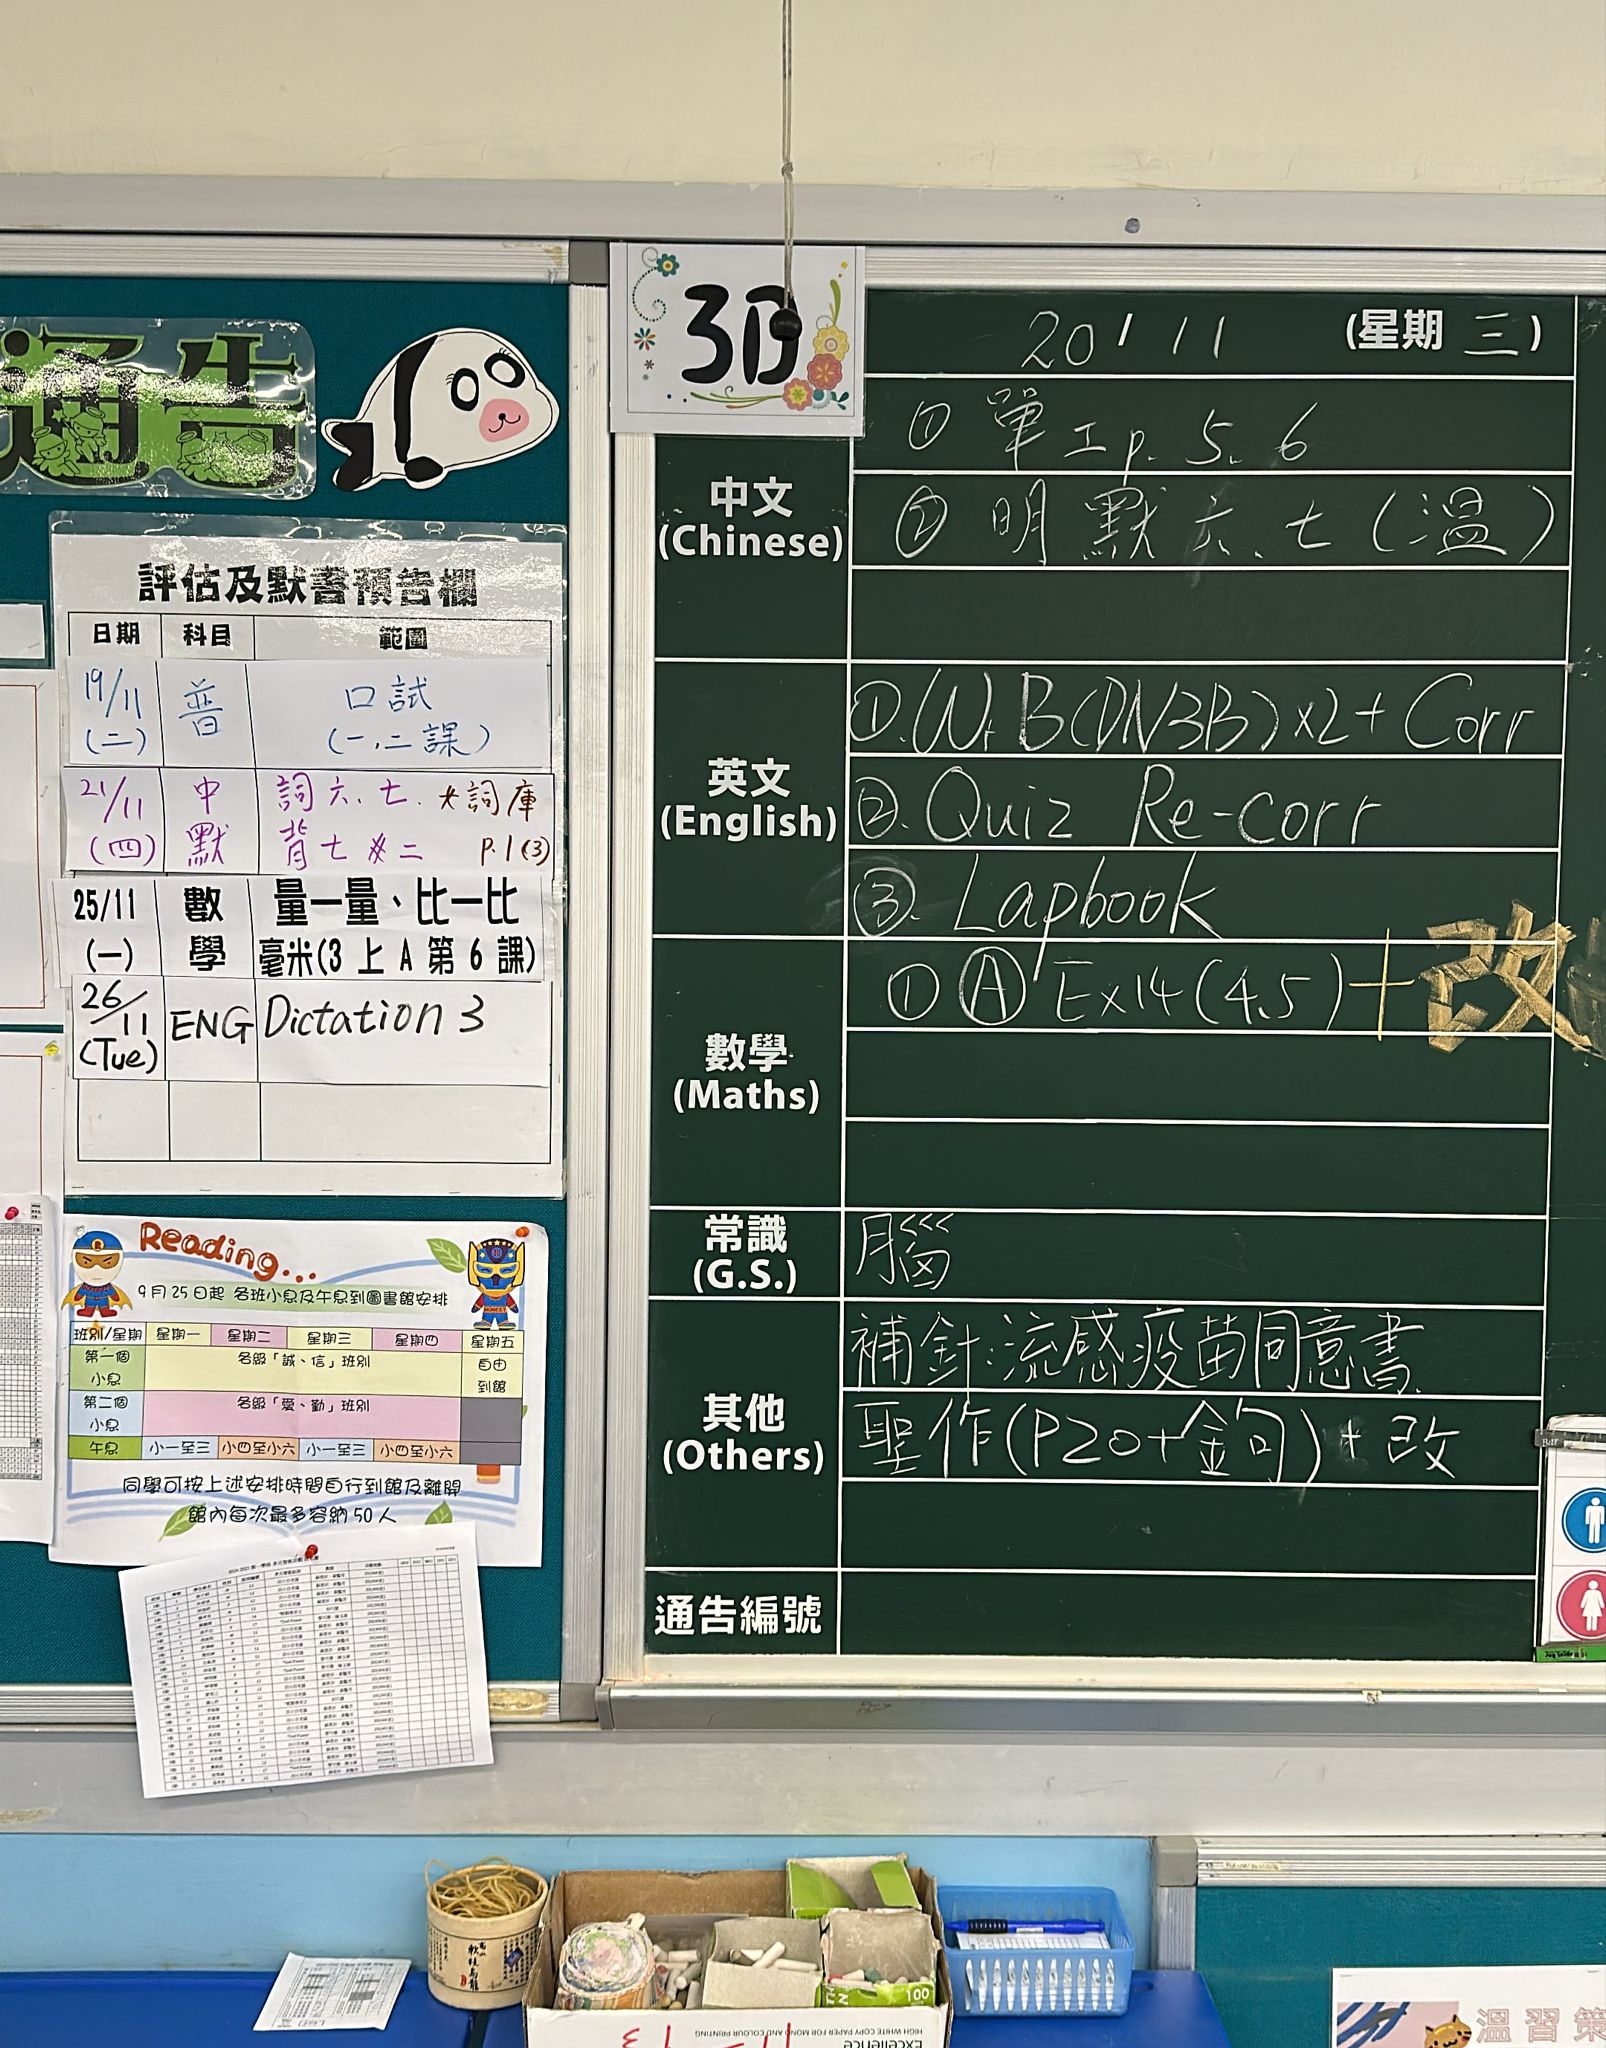 通告
評估及默書預告欄
日期 科目 範圍
19/11 (二) 普 口試 (一,二課)
21/11 (四) 中默 詞六、七. *詞庫
背七 *二 P.1(3)
25/11 (一) 數學 量一量、比一比
毫米(3上A第6課)
26/11 (Tue) ENG Dictation 3
Reading...
9月25日起 各班小息及午息到圖書館安排
班別/星期 星期一 星期二 星期三 星期四 星期五
第一個小息 各級「誠、信」班別 自由到館
第二個小息 各級「愛、勤」班別
午息 小一至三 小四至小六 小一至三 小四至小六
同學可按上述安排時間自行到館及離開
館內每次最多容納50人
3D
20/11 (星期三)
中文 (Chinese)
① 單工p.5、6
② 明默六、七(溫)
英文 (English)
①.W.B(DN3B)×2+Corr
②.Quiz Re-corr
③.Lapbook
數學 (Maths)
① Ⓐ Ex14(4.5)+改
常識 (G.S.)
腦
其他 (Others)
補針:流感疫苗同意書
聖作(P20+金句)+改
通告編號
100
HIGH WHITE COPY PAPER FOR MONO AND COLOUR PRINTING
Excellence
溫習策